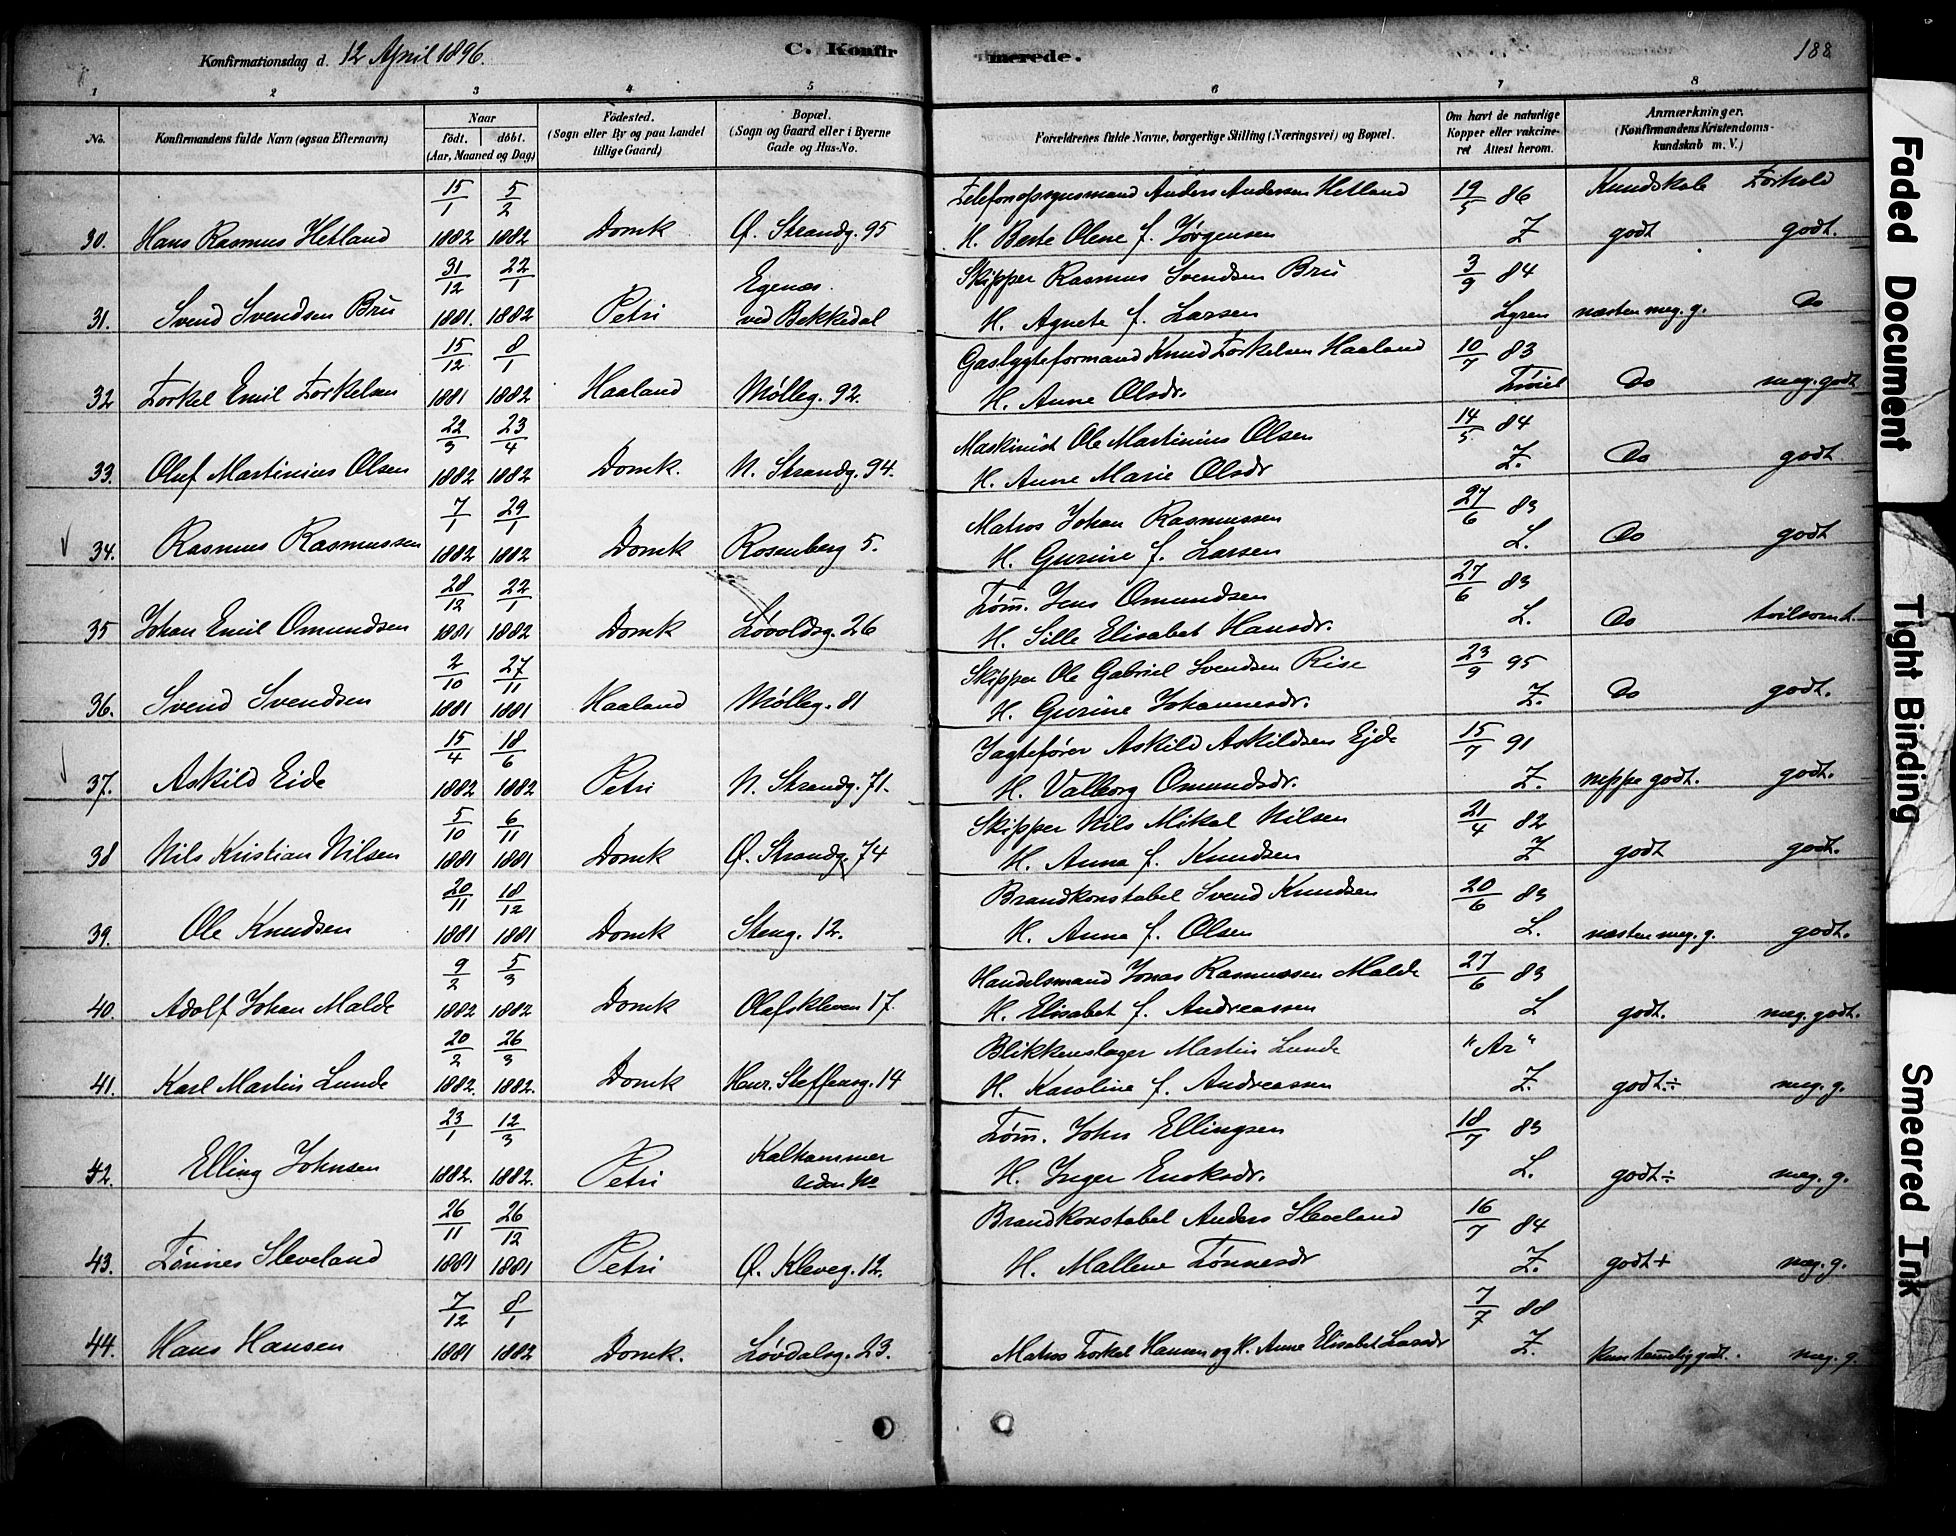 Konfirmationsdag d. 12 April 1896. C. Konfirmerede. 188
1 2 3 4 5 6 7 8
No. Konfirmandens fulde Navn (ogsaa Efternavn) Naar født. døbt. (Aar, Maaned og Dag) Födested. (Sogn eller By og paa Landet tillige Gaard) Bopæl. (Sogn og Gaard eller i Byerne Gade og Hus-No. Forældrenes fulde Navne, borgerlige Stilling (Næringsvei) og Bopæl. Om havt de naturlige Kopper eller vakcineret Attest herom. Anmærkninger. (Konfirmandens Kristendomskundskab m. V.)
15/1 5/2 Telefonopsynsmand Anders Andersen Hetland 19/5 86 Kundskab Forhold
30. Hans Rasmus Hetland 1882 1882 Domk Ø. Strandg. 95 H. Berte Olene f. Jørgensen Z godt godt.
31/12 22/1 Egenæs. Skipper Rasmus Svendsen Bru 3/9 84
31. Svend Svendsen Bru 1881. 1882 Petri ved Bekkedal H. Agnete f. Larsen Lyren næsten meg. g. Do
15/12 8/1 Gaslygteformand Knud Torkelsen Haaland 10/7 83
32 Torkel Emil Torkelsen 1881 1882 Haaland Mølleg. 92. H. Anne Olsdr. Do meg. godt
22/3 23/4 Maskinist Ole Martinius Olsen 14/5 84
33. Oluf Martinius Olsen 1882 1882 Domk. N. Strandg. 94. H. Anne Marie Olsdr Z. Do godt
7/1 29/1 Matros Johan Rasmussen 27/6 83
34. Rasmus Rasmussen 1882 1882 Domk Rosenberg 5. H. Gurine f. Larsen L. Do godt
28/12 22/1 Tøm. Jens Omundsen 27/6 83
35 Johan Emil Omundsen 1881 1882 Domk Løvoldsg. 26 H. Sille Elisabet Hansdr. L. Do tvilsomt.
2/10 27/11 Skipper Ole Gabriel Svendsen Rise 23/9 95
36. Svend Svendsen 1881 1881 Haaland Mølleg. 81 H. Gurine Johannesdr. Z. Do godt.
15/4 18/6 Jagtefører Askild Askildsen Ejde 15/7 91
37. Askild Eide 1882 1882 Petri N. Strandg. 71. H. Valborg Omundsdr. Z. neppe godt. godt.
5/10 6/11 Skipper Nils Mikal Nilsen 21/4 82
38 Nils Kristian Nilsen 1881 1881 Domk Ø. Strandg. 74 H. Anna f. Knudsen Z godt godt.
20/11 18/12 Brandkonstabel Svend Knudsen 20/6 83
39. Ole Knudsen 1881 1881 Domk Steng. 12. H. Anna f. Olsen L. næsten meg. g. godt.
9/2 5/3 Handelsmand Jonas Rasmussen Malde 27/6 83
40. Adolf Johan Malde 1882 1882 Domk Olafskleven 17. H. Elisabet f. Andreassen L godt. meg. godt.
20/2 26/3 Blikkenslager Martin Lunde "Ar"
41. Karl Martin Lunde 1882. 1882. Domk Henr. Steffensg. 14 H. Karoline f. Andreassen Z. godt.÷ meg. g.
23/1 12/3 Kalhammer Tøm. John Ellingsen 18/7 83
42. Elling Johnsen 1882. 1882. Petri uden No H. Inger Enoksdr. L. godt÷ meg. g.
26/11 26/12 Brandkonstabel Anders Sleveland 16/7 84
43. Tønnes Sleveland 1881 1881 Petri Ø. Kleveg. 12. H. Mallene Tønnesdr Z. godt+ meg. g.
7/12 8/1 7/7 88
44. Hans Hansen 1881 1882 Domk. Løvdalsg. 23. Matros Torkel Hansen og H. Anne Elisabet Larsdr Z. kun temelig godt. meg. g.
Faded Document
Tight Binding
Smeared Ink